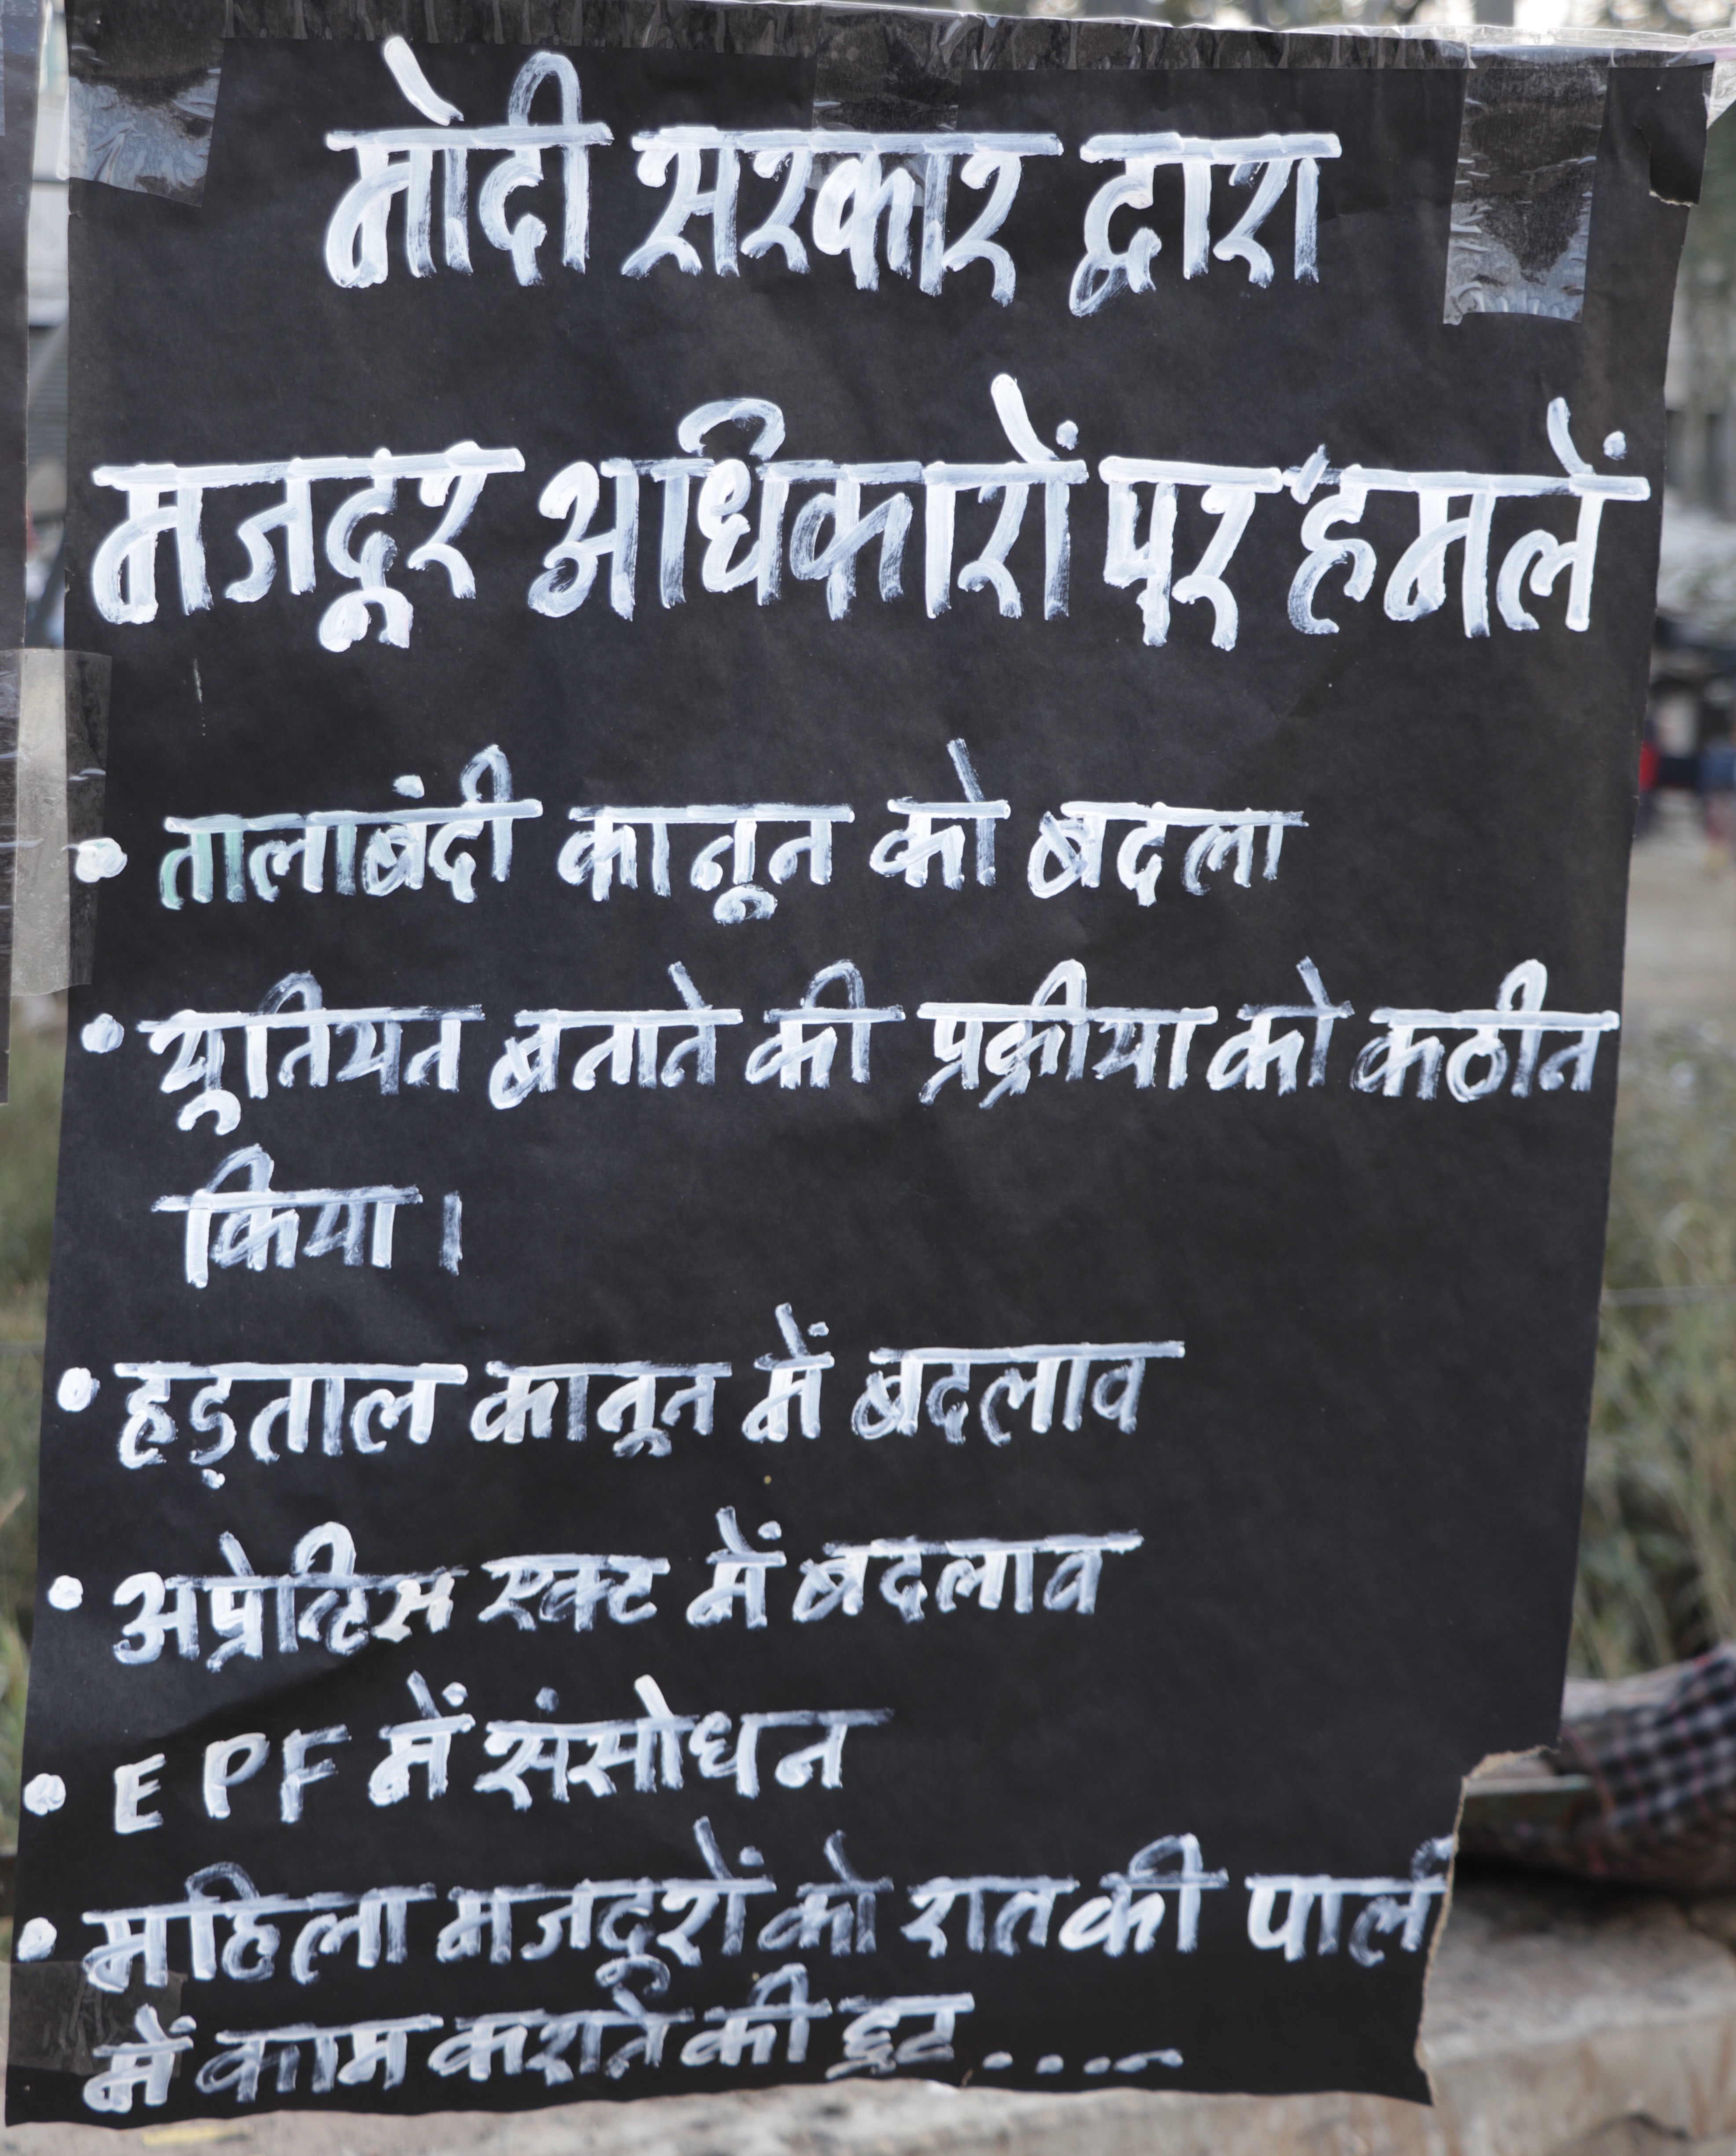 मोदी सरकार द्वारा
मजदूर अधिकारों पर हमलें
• तालाबंदी कानून को बदला
• यूनियन बनाने की प्रक्रीया को कठीन
किया।
• हड़ताल कानून में बदलाव
• अप्रेन्टिस एक्ट में बदलाव
• EPF में संसोधन
• महिला मजदूरों को रात की पाली
में काम कराने की छूट.....